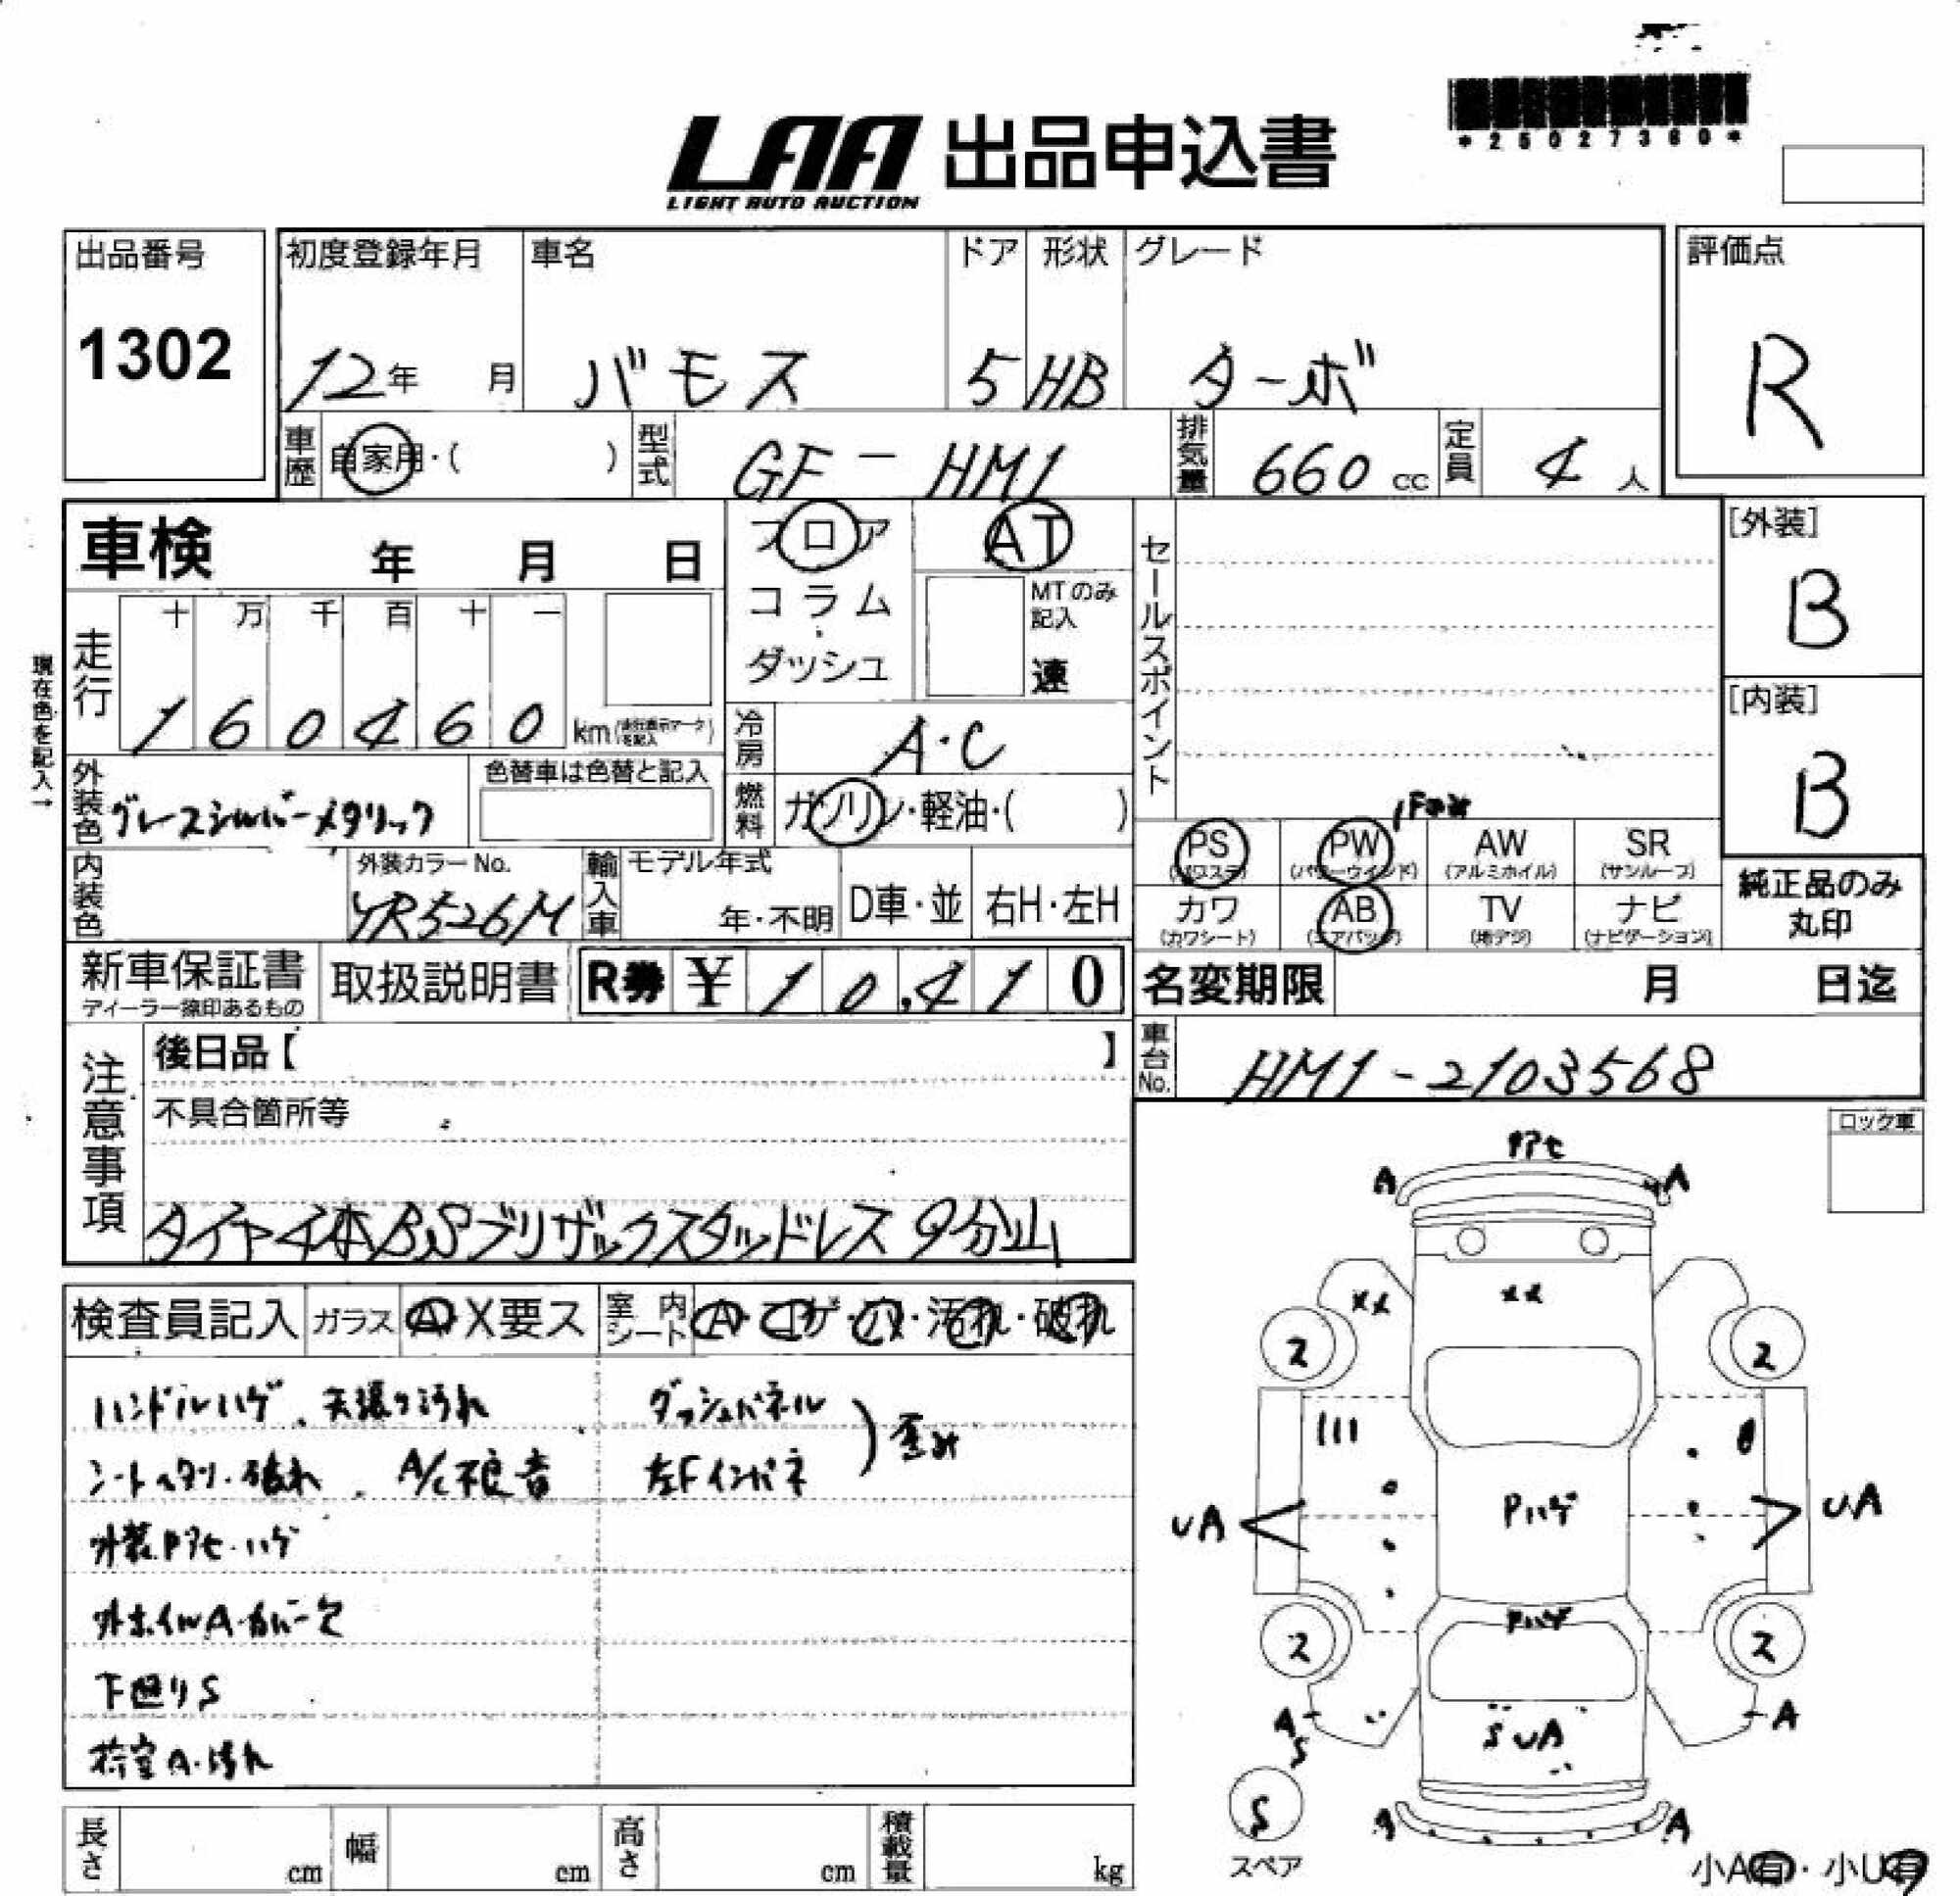 *25027360*
LAA 出品申込書
LIGHT AUTO AUCTION
出品番号 初度登録年月 車名 ドア 形状 グレード 評価点
1302 12年 月 バモス 5 HB ターボ R
車歴 自家用・( ) 型式 GF-HM1 排気量 660cc 定員 4人
車検 年 月 日 フロア AT セールスポイント [外装]
コラム MTのみ記入 B
ダッシュ 速
現在色を記入→
走行 十 万 千 百 十 一
1 6 0 4 6 0 km(走行表示マークを記入) 冷房 A・C [内装]
B
外装色 グレースシルバーメタリック 色替車は色替と記入 燃料 ガソリン・軽油・( )
Fのみ
PS (パワステ) PW (パワーウインド) AW (アルミホイル) SR (サンルーフ)
内装色 外装カラーNo. YR526M 輸入車 モデル年式 年・不明 D車・並 右H・左H
カワ (カワシート) AB (エアバッグ) TV (地デジ) ナビ (ナビゲーション)
純正品のみ
丸印
新車保証書 ディーラー捺印あるもの 取扱説明書 R券 ¥ 10,410 名変期限 月 日迄
注意事項 後日品【 】 車台No. HM1-2103568
不具合箇所等 ロック車
タイヤ4本BSブリザックスタッドレス9分山
検査員記入 ガラス A・X要ス 室内シート A・コゲ・穴・汚れ・破れ
ハンドルハゲ、天張り汚れ ダッシュパネル
シートヘタリ・破れ、A/C不良音 左Fインパネ )歪み
外装Pアセ・ハゲ
外ホイルA・カバー欠
下廻りS
荷室A・汚れ
Pアセ
A A
XX XX
2 2
UA Pハゲ UA
Pハゲ
2 2
A S SUA A
S
スペア
A A
長さ cm 幅 cm 高さ cm 積載量 kg
小A有・小U有